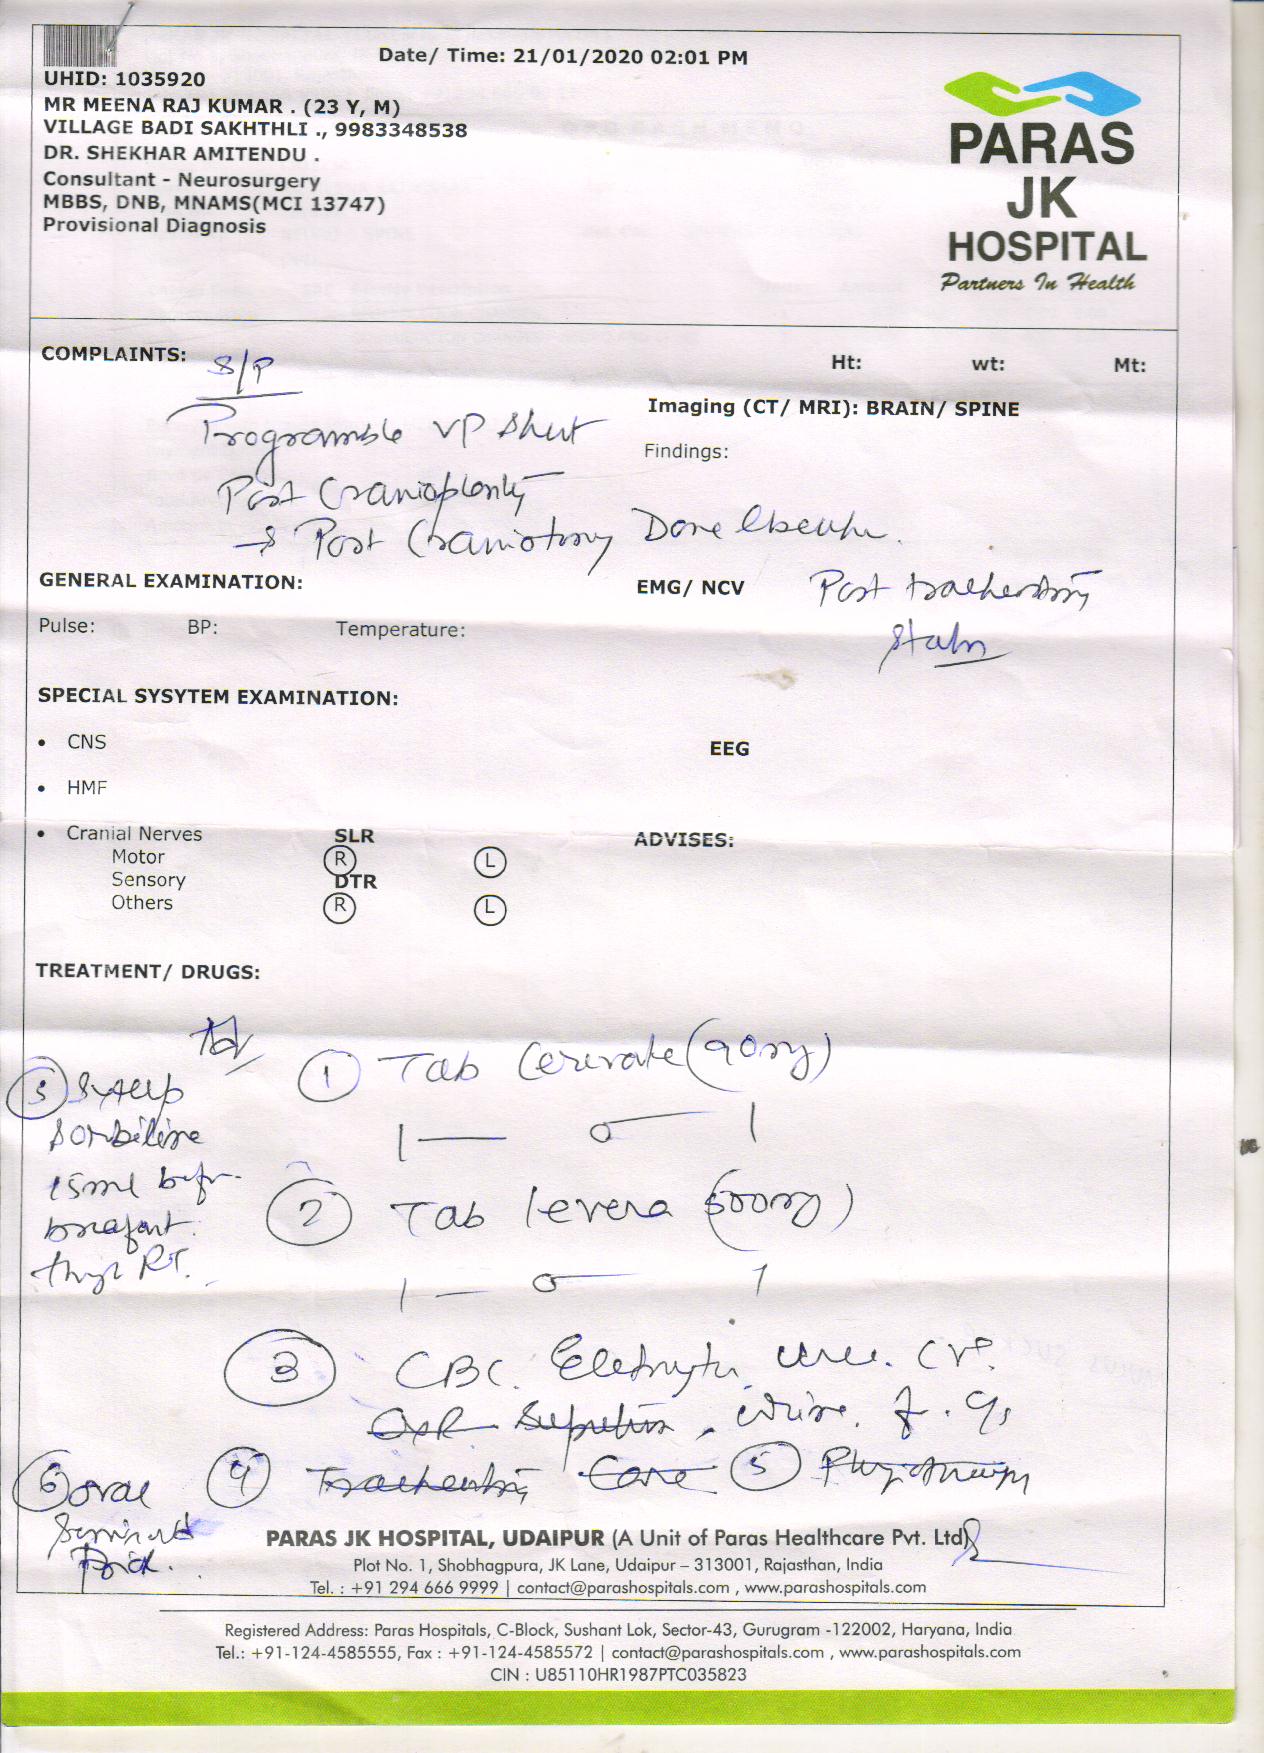 Date/ Time: 21/01/2020 02:01 PM
UHID: 1035920
MR MEENA RAJ KUMAR . (23 Y, M)
VILLAGE BADI SAKHTHLI ., 9983348538
DR. SHEKHAR AMITENDU .
Consultant - Neurosurgery
MBBS, DNB, MNAMS(MCI 13747)
Provisional Diagnosis
PARAS
JK
HOSPITAL
Partners In Health
COMPLAINTS: S/P
Ht: wt: Mt:
Imaging (CT/ MRI): BRAIN/ SPINE
Findings:
VP Shunt
Post Cranioplasty
→ Post Craniotomy Done
GENERAL EXAMINATION:
EMG/ NCV
Post tracheostomy
Pulse: BP: Temperature:
status
SPECIAL SYSYTEM EXAMINATION:
• CNS
EEG
• HMF
• Cranial Nerves SLR
ADVISES:
Motor R L
Sensory DTR
Others R L
TREATMENT/ DRUGS:
① Tab (90mg)
1 — 0 — 1
② Tab levera (500mg)
1 — 0 — 1
③ CBC. Electrolytes
④ Tracheostomy Care ⑤ Physiotherapy
⑤ Syrup
15ml before
breakfast
RT.
⑥ oral
PARAS JK HOSPITAL, UDAIPUR (A Unit of Paras Healthcare Pvt. Ltd)
Plot No. 1, Shobhagpura, JK Lane, Udaipur – 313001, Rajasthan, India
Tel. : +91 294 666 9999 | contact@parashospitals.com , www.parashospitals.com
Registered Address: Paras Hospitals, C-Block, Sushant Lok, Sector-43, Gurugram -122002, Haryana, India
Tel.: +91-124-4585555, Fax : +91-124-4585572 | contact@parashospitals.com , www.parashospitals.com
CIN : U85110HR1987PTC035823